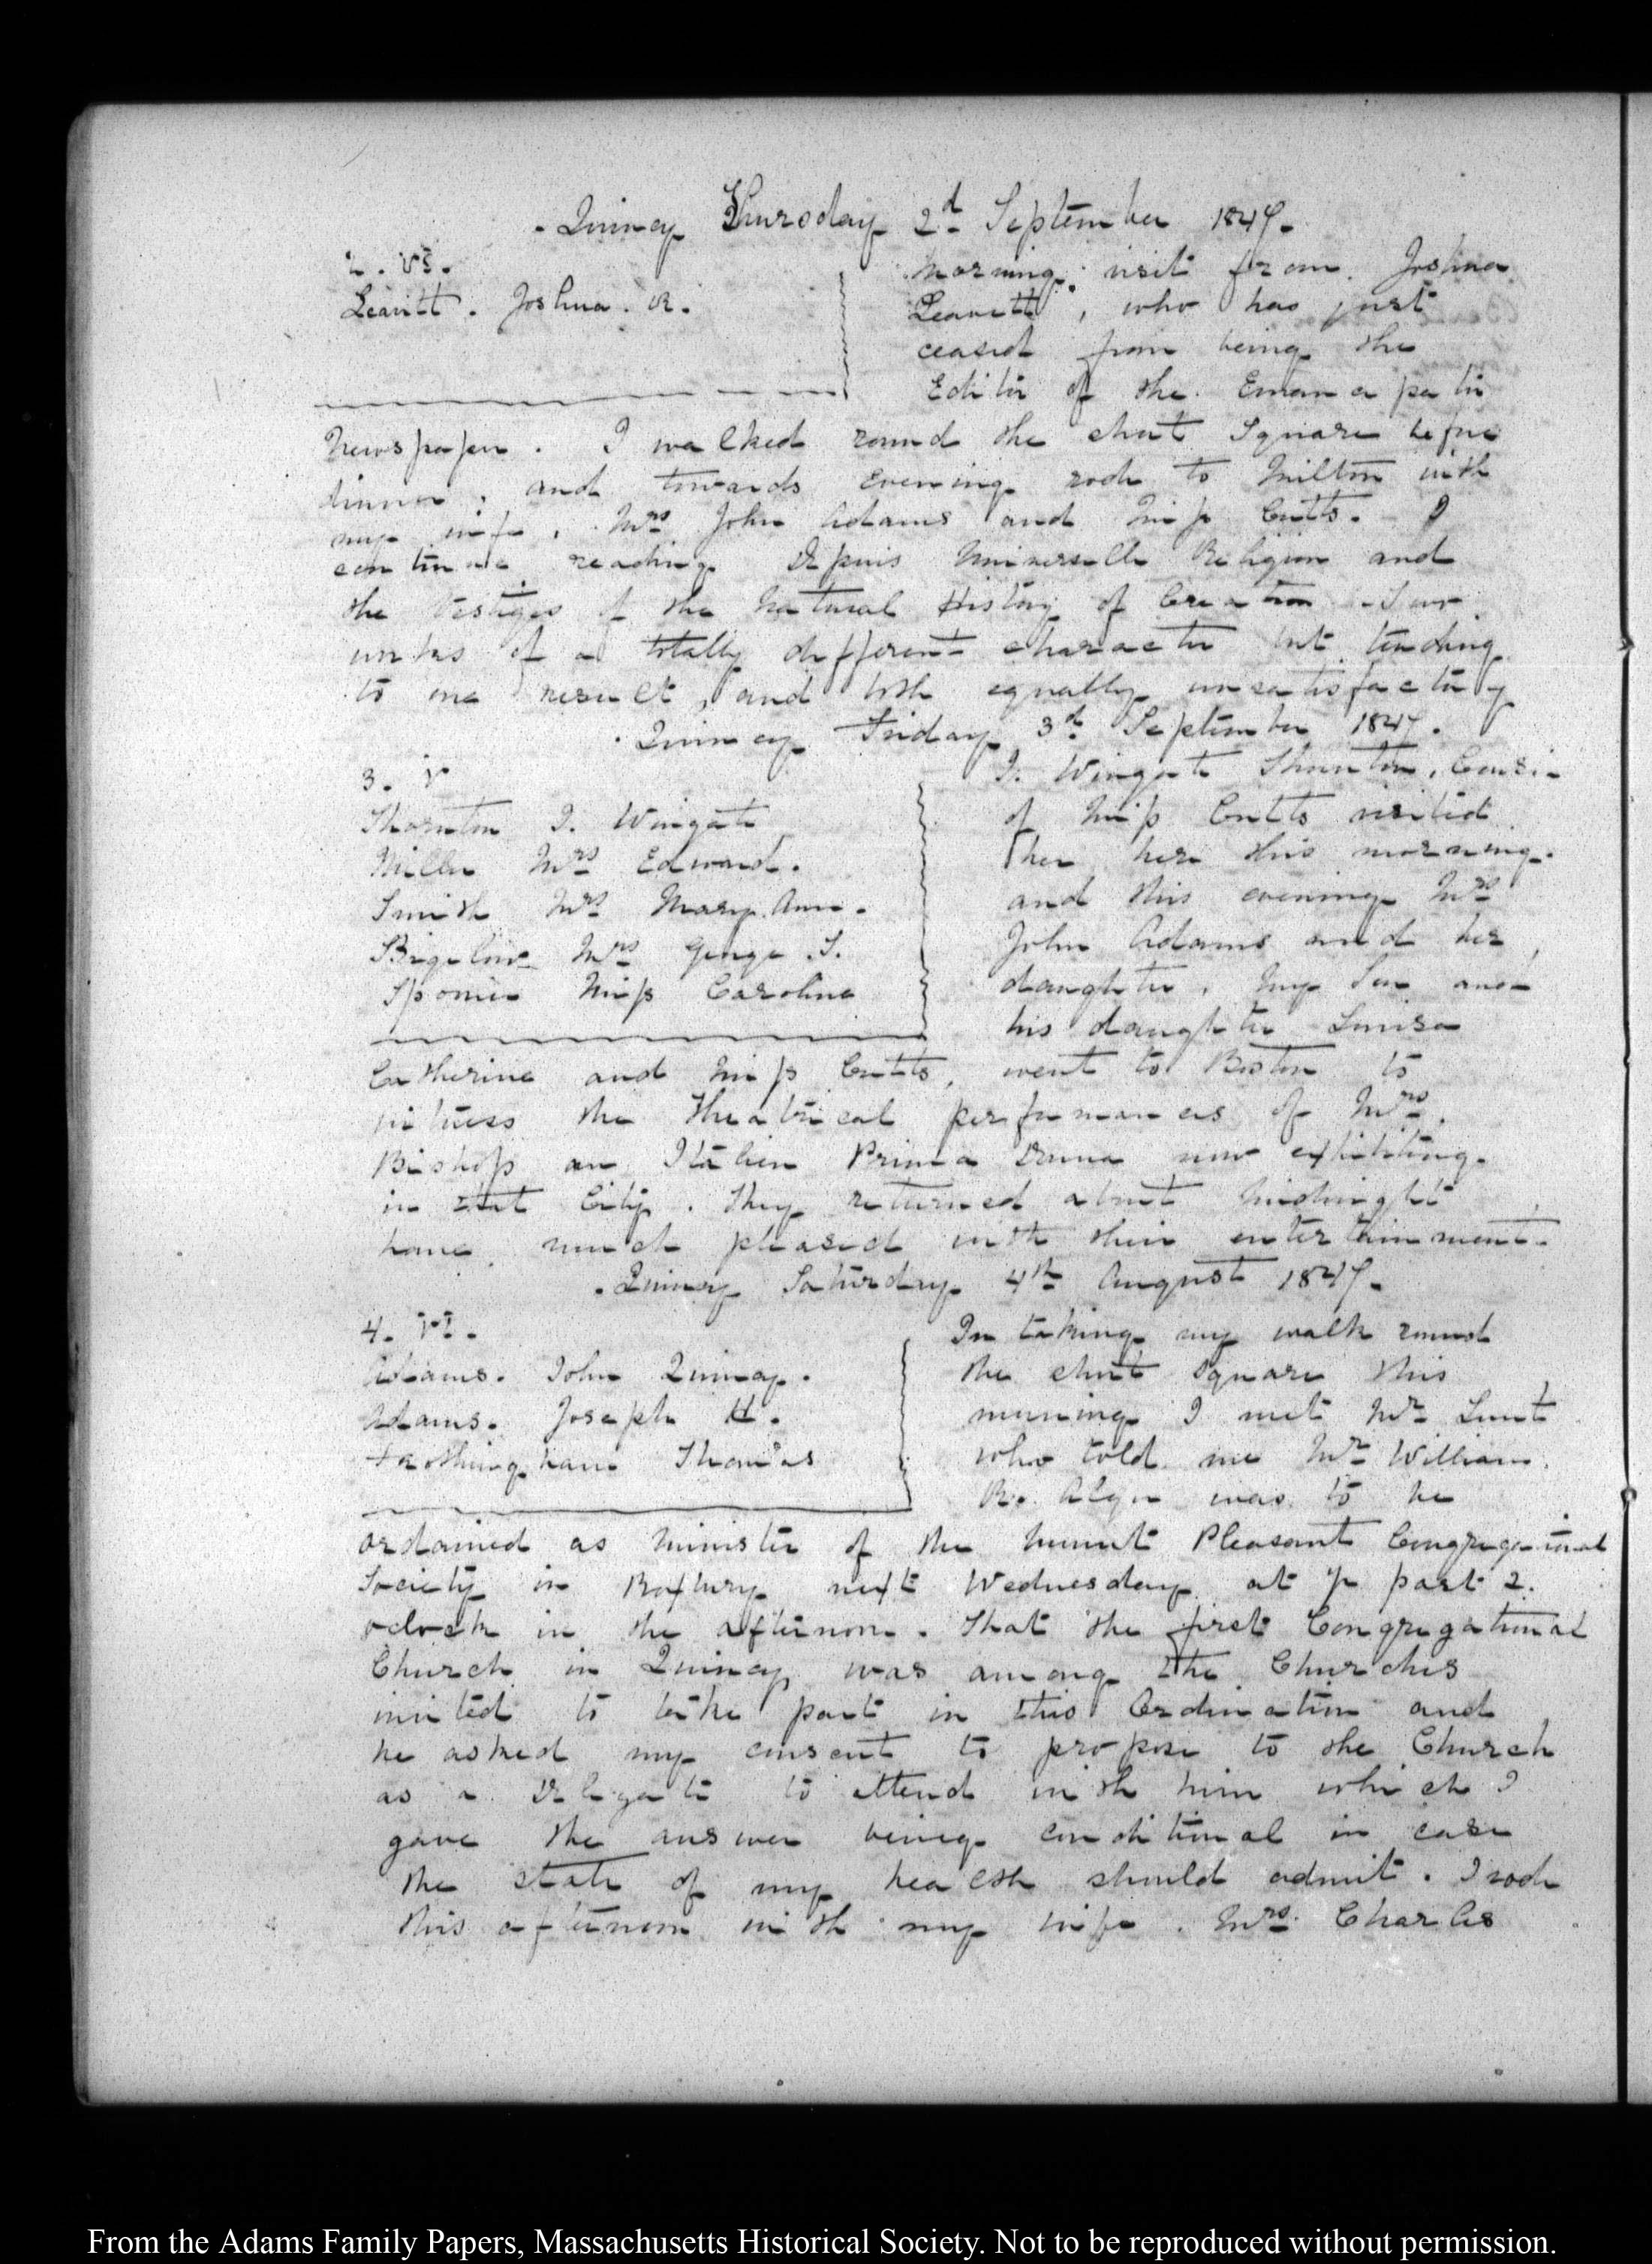 Quincy Thursday 2d September 1847.
2. V:5.
Leavitt. Joshua. R.
morning visit from Joshua
Leavitt, who has just
ceased from being the
Editor of the Emancipator
Newspaper. I walked round the short Square before
dinner, and towards evening rode to Milton with
my wife, Mrs John Adams and Miss Cutts. I
continue reading Dupuis Universelle Religion and
the Vestiges of the Natural History of Creation. Two
works of a totally different character but tending
to one result, and both equally unsatisfactory
Quincy Friday 3d September 1847.
3. V
Thornton J. Wingate
Miller Mrs Edward.
Smith Mrs Mary Ann.
Bigelow Mrs George T.
Miss Caroline
J. Wingate Thornton, Cousin
of Miss Cutts visited
her here this morning.
and this evening Mrs
John Adams and her
daughter, my Son and
his daughter Louisa
Catherine and Miss Cutts, went to Boston to
witness the theatrical performances of Mrs
Bishop an Italian Prima Donna now exhibiting
in that City. They returned about midnight
home much pleased with their entertainment.
Quincy Saturday 4th August 1847.
4. VI.
Adams. John Quincy.
Adams. Joseph H.
Frothingham Thomas
In taking my walk round
the short square this
morning I met Mr Lunt
who told me Mr William
R. Alger was to be
ordained as minister of the Mount Pleasant Congregational
Society in Roxbury next Wednesday at 1/2 past 2.
oclock in the afternoon. That the first Congregational
Church in Quincy was among the Churches
invited to take part in this Ordination and
he asked my consent to propose to the Church
as a Delegate to attend with him which I
gave the answer being conditional in case
the state of my health should admit. I rode
this afternoon with my wife. Mrs Charles
From the Adams Family Papers, Massachusetts Historical Society. Not to be reproduced without permission.